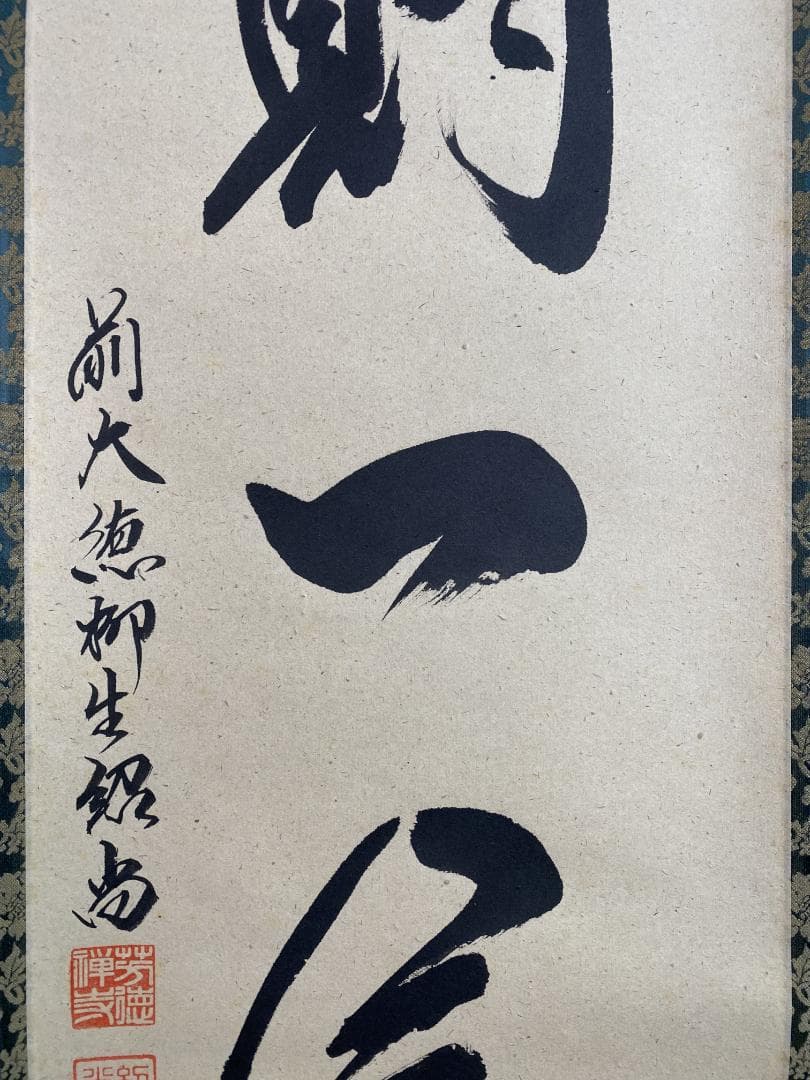 期一会
前大徳柳生紹尚
芳徳
禅寺